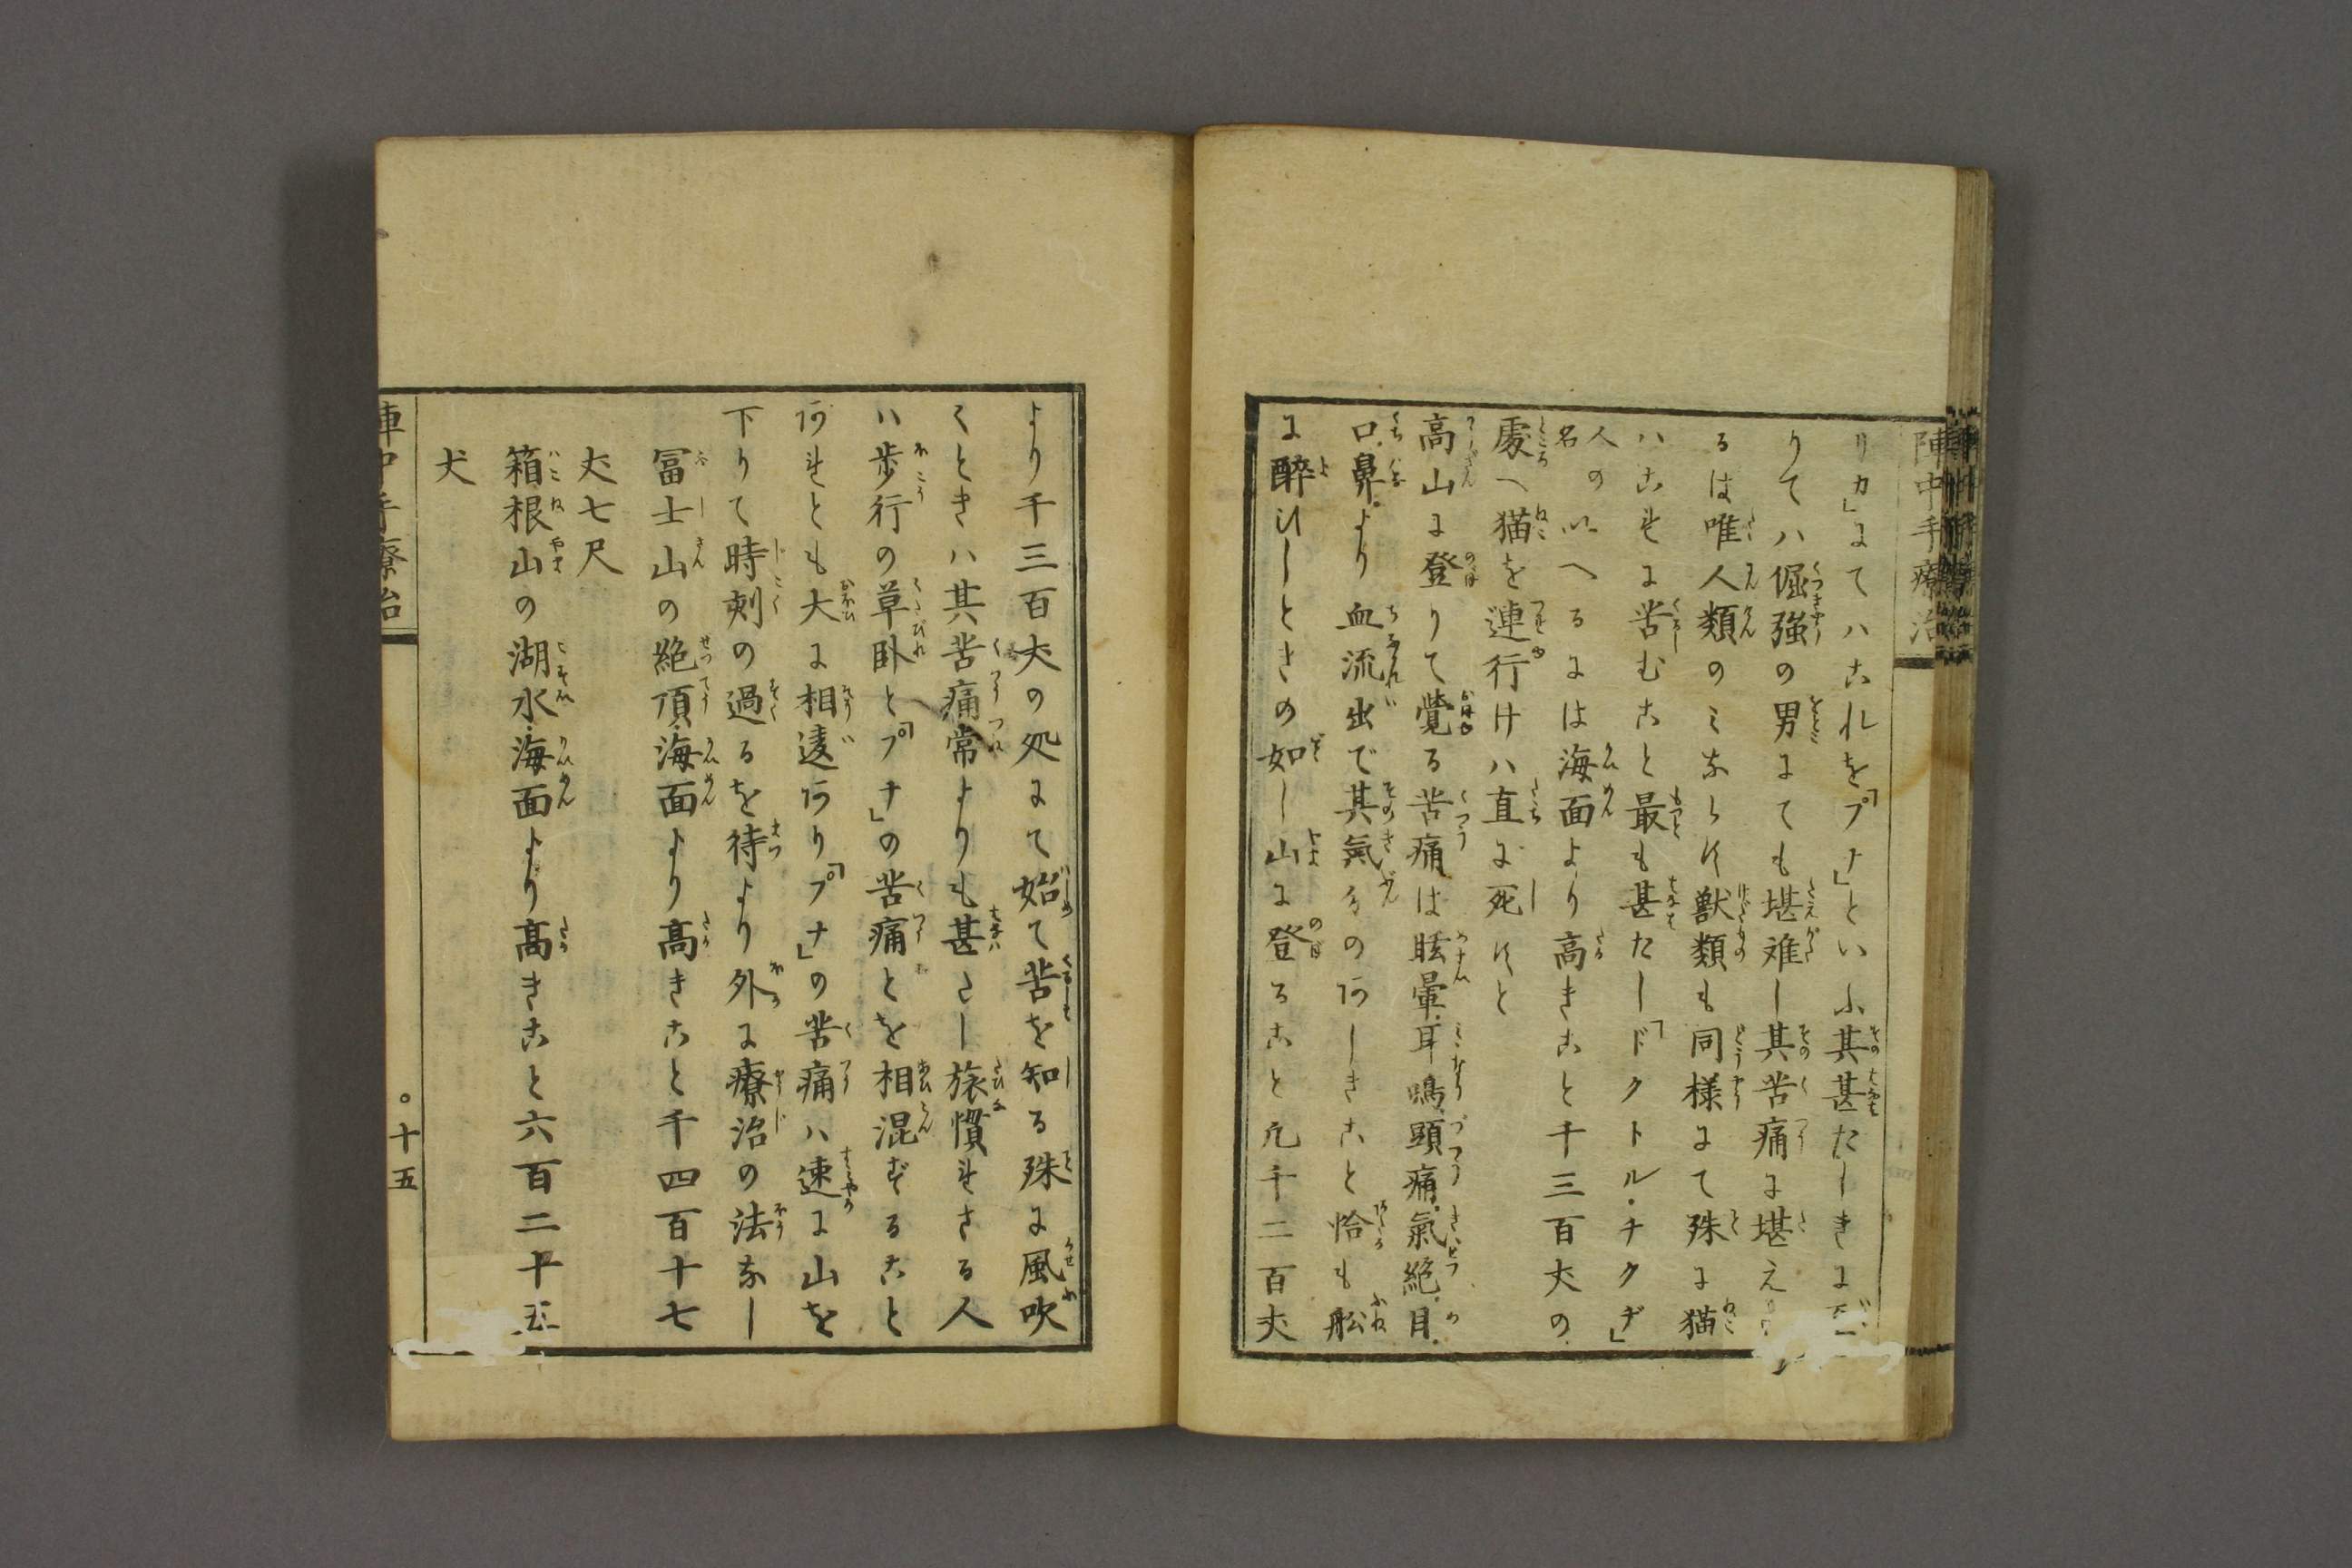 陣中手療治
リカ」にてハこれを「プナ」といふ其甚だしきに至
りてハ倔強の男にても堪難し其苦痛に堪え
るは唯人類のミならず獣類も同様にて殊に猫
ハこれに苦むこと最も甚だし「ドクトル・チクヂ」
人名のいへるには海面より高きこと千三百丈の
處へ猫を連行けハ直に死すと
高山に登りて覺る苦痛は眩暈.耳鳴.頭痛.氣絶.目.
口.鼻.より血流出で其氣分のあしきこと恰も舩
に醉ひしときの如し山に登ること凡千二百丈
より千三百丈の処にて始て苦を知る殊に風吹
くときハ其苦痛常よりも甚だし旅慣れざる人
ハ歩行の草臥と「プナ」の苦痛とを相混ずること
あれとも大に相違あり「プナ」の苦痛ハ速に山を
下りて時刻の過るを待より外に療治の法なし
冨士山の絶頂.海面より高きこと千四百十七
丈七尺
箱根山の湖水.海面より高きこと六百二十五
丈
陣中手療治
十五